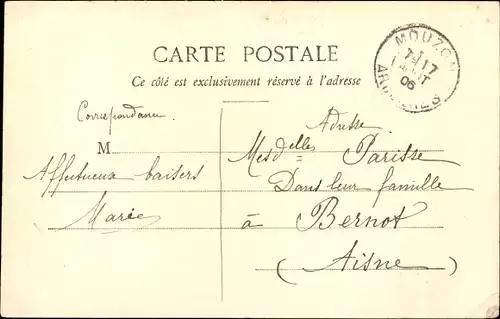 CARTE POSTALE
Ce côté est exclusivement réservé à l'adresse
MOUZON
17
AOUT
06
ARDENNES
Correspondance
Adresse
M
Affectueux baisers
Marie
Mesdelles Parisse
Dans leur famille
à Bernot
(Aisne)